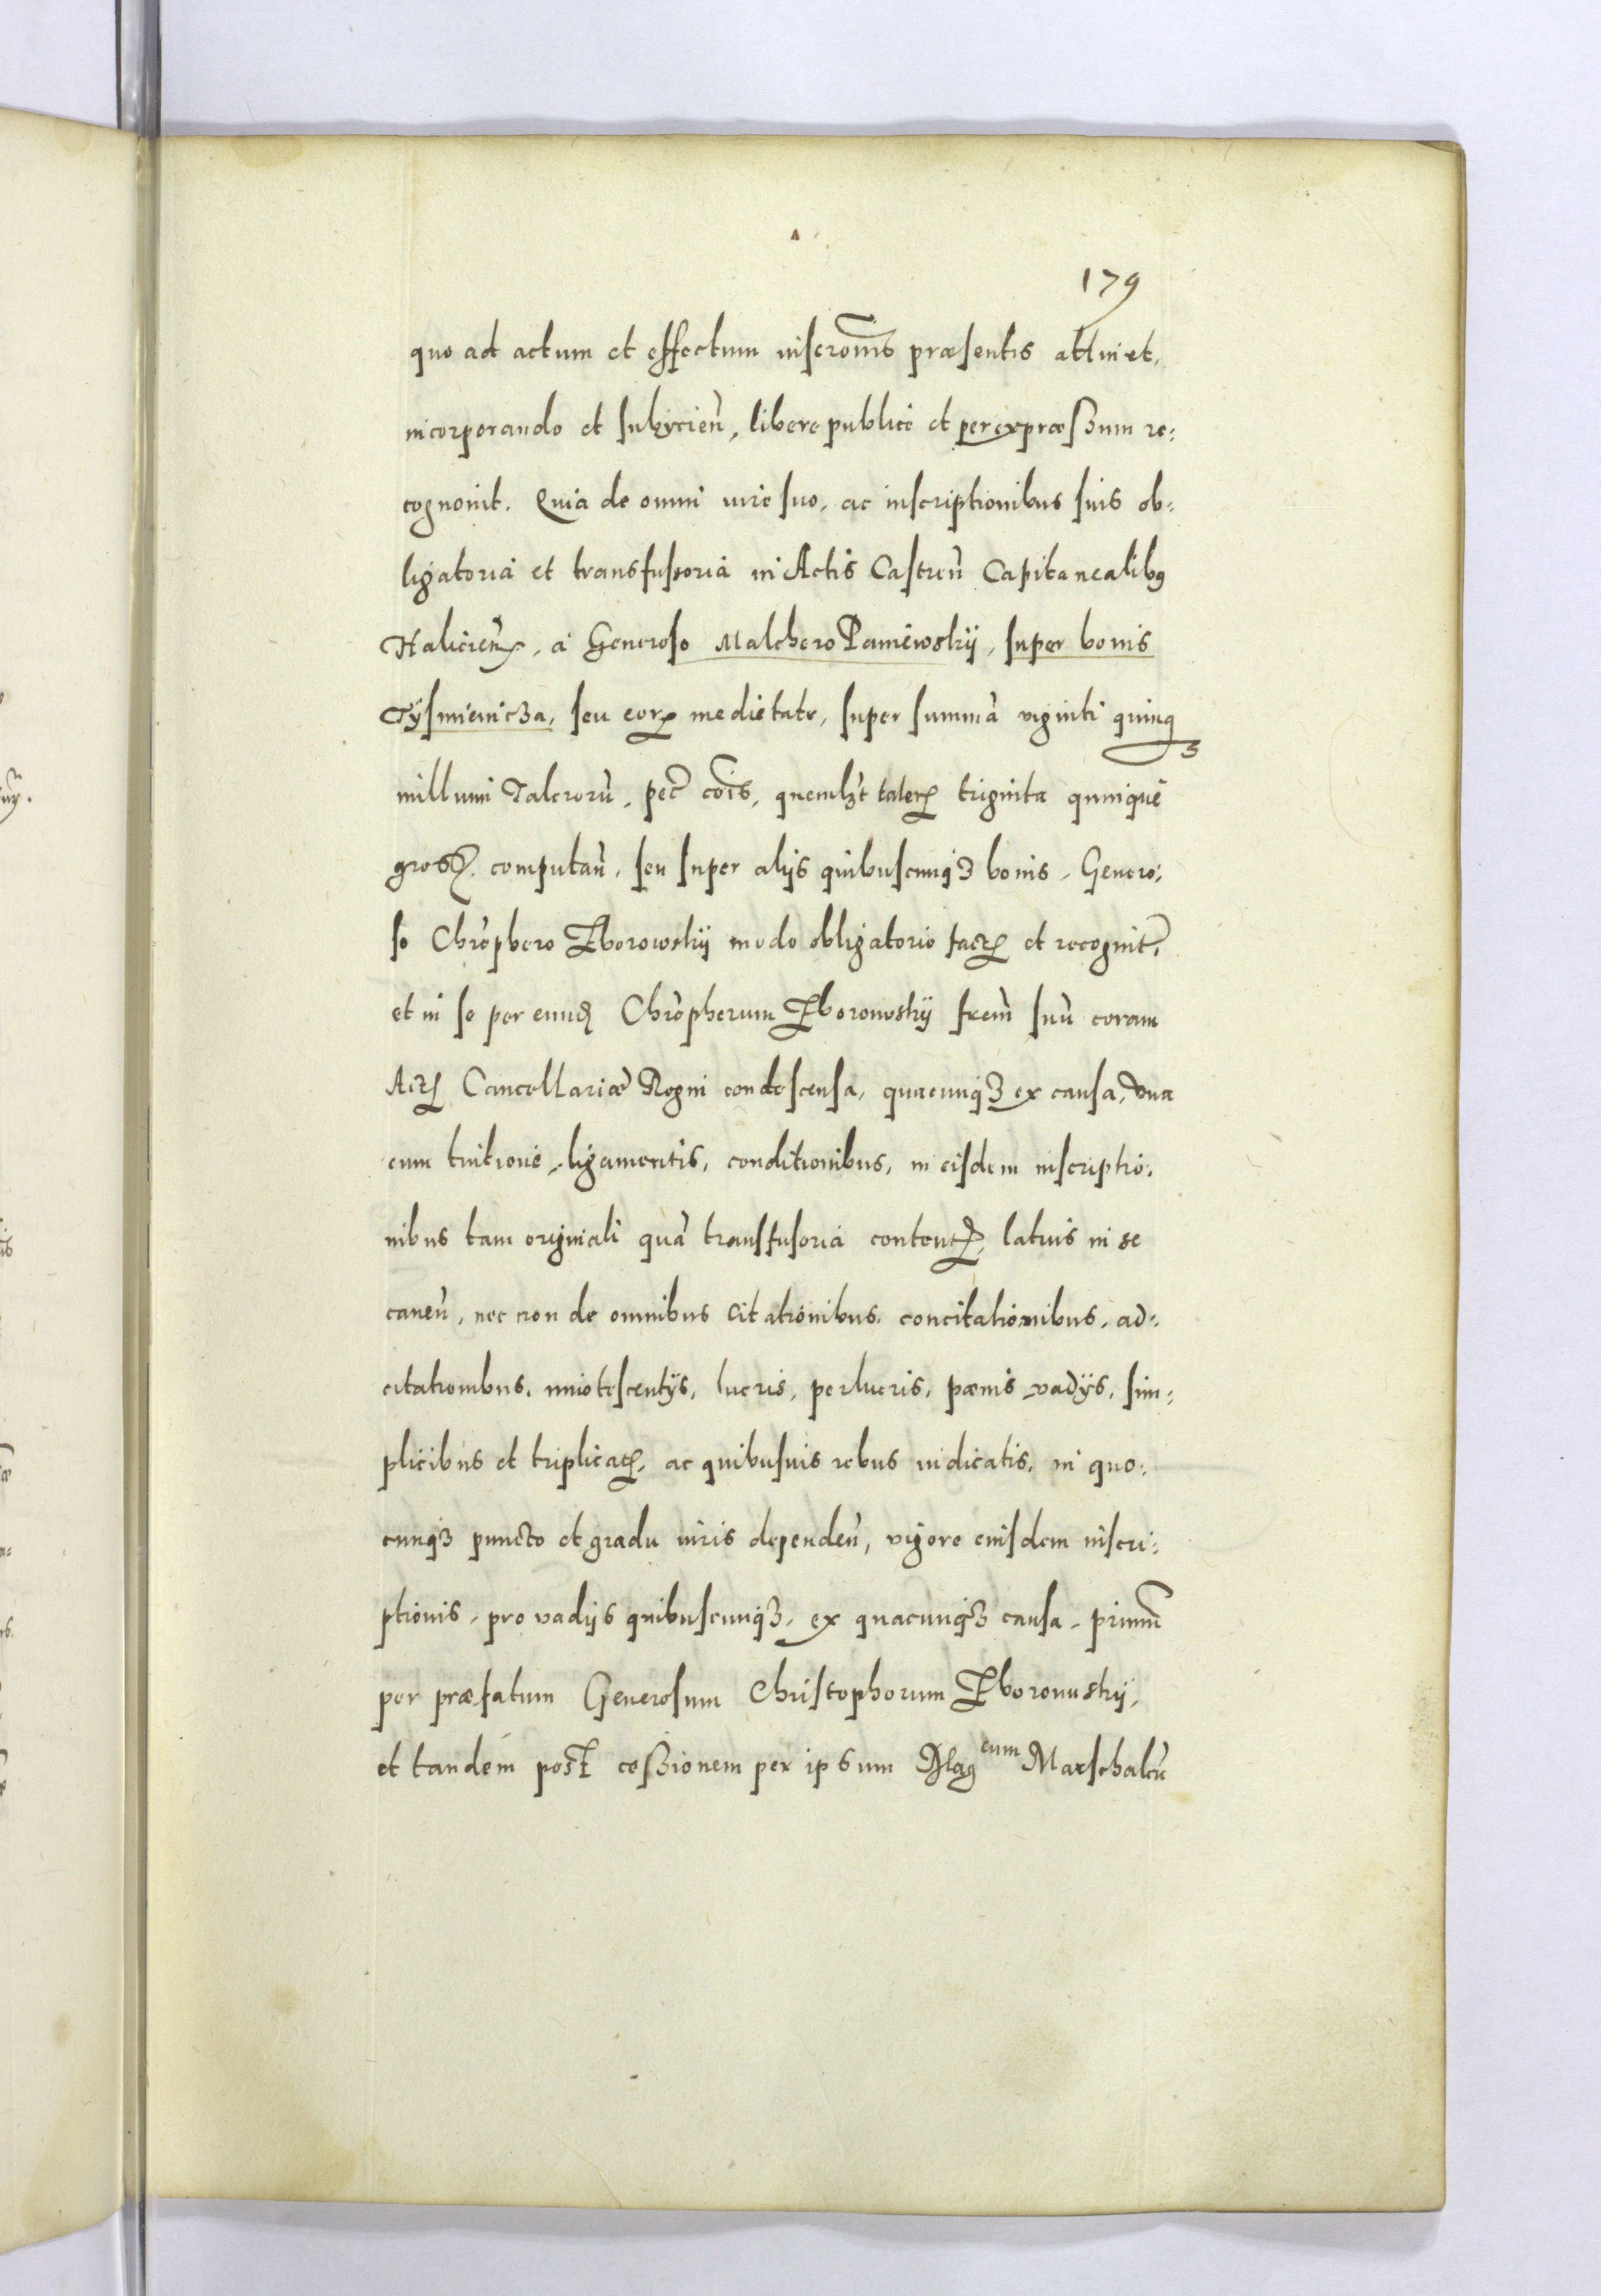 179
quo ad actum et effectum inscro͞nis præsentis attinet,
incorporando et subijcieñ, libere publice et per expræssum re:
cognovit. Quia de omni iure suo, ac inscriptionibus suis ob:
ligatoria et transfusoria in Actis Castreñ Capitanealibꝰ
Halicieñ, a Generoso Malchero Paniewskij, super bonis
Tÿsmienicza, seu eorꝝ medietate, super summã viginti quinqꝫ
millium Talerorũ, pec̃ cõis, quemlꝫt talerꝝ triginta quinque
gross. computañ, seu super alijs quibuscunqꝫ bonis, Genero:
so Chrõphero Zborowskij modo obligatorio factꝝ et recognit̃,
et in se per eundꝫ Chrõpherum Zborowskij frem̃ suũ coram
Actꝭ Cancellariæ Regni condescensa, quacunqꝫ ex causa, vna
cum tuitione, ligamentis, conditionibus, in eisdem inscriptio:
nibus tam originali quã transfusoria contentꝭ, latius in se
caneñ, nec non de omnibus citationibus, concitationibus, ad:
citationibus, innotescentijs, lucris, perlucris, pœnis vadijs, sim:
plicibus et triplicatꝭ, ac quibusuis rebus iudicatis, in quo:
cunqꝫ puncto et gradu iuris dependeñ, vigore eiusdem inscri:
ptionis, pro vadijs quibuscunqꝫ, ex quacunqꝫ causa, primũ
per præfatum Generosum Christophorum Zborowskij,
et tandem post cessionem per ipsum Mag<sup>cum</sup> Marschalcũ